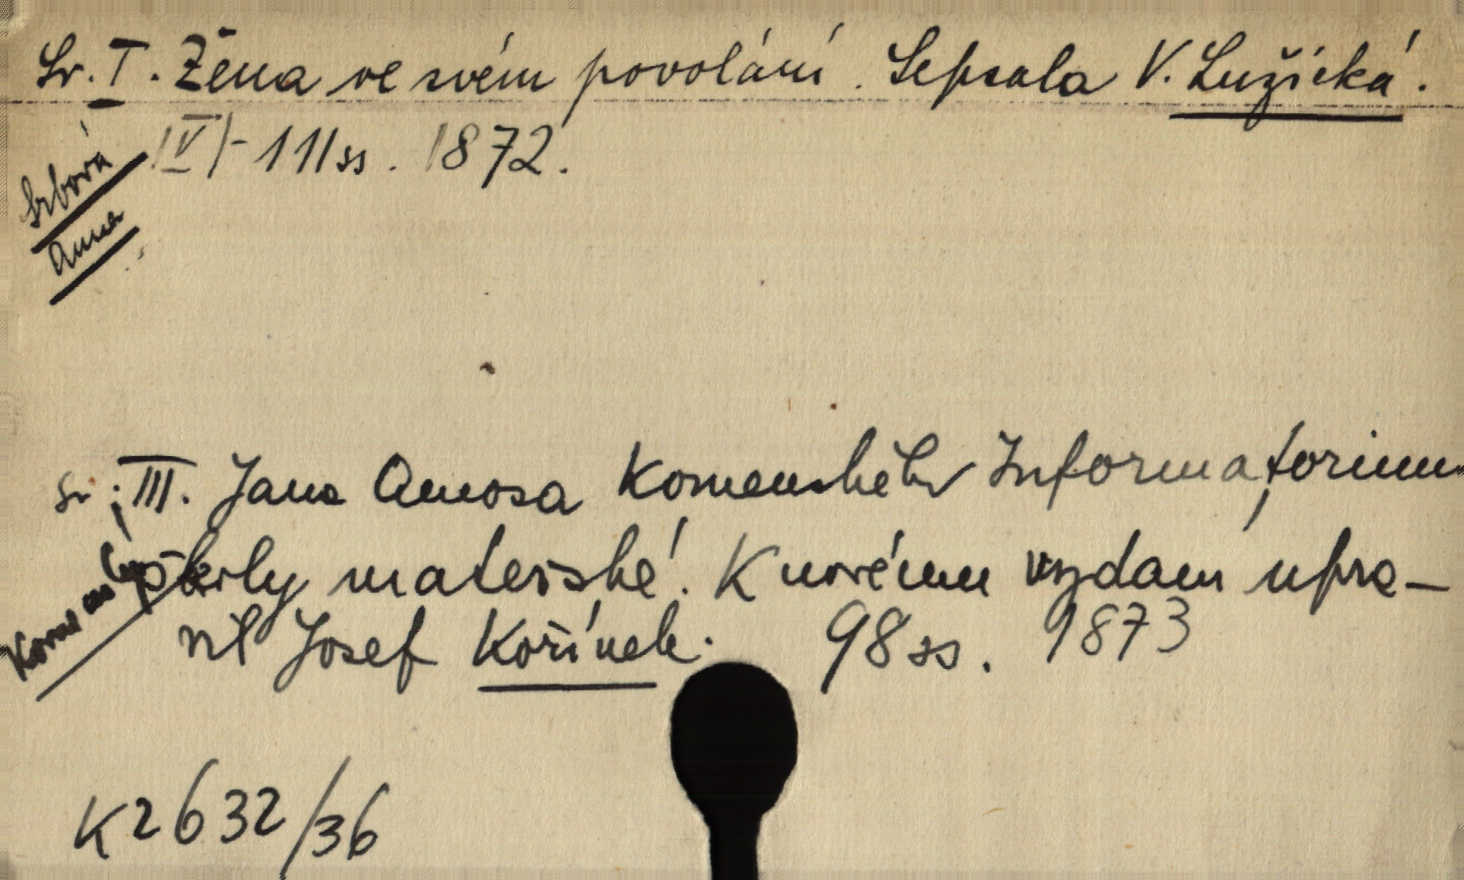 Sv. I. Žena ve svém povolání. Sepsala V. Lužická.
(IV)-111 ss. 1872.
Srbová
Anna
Sv. III. Jana Amosa Komenského Informatorium
školy mateřské. K novému vydání upra-
vil Josef Kořínek. 98 ss. 1873
Komenský
K 2632/36